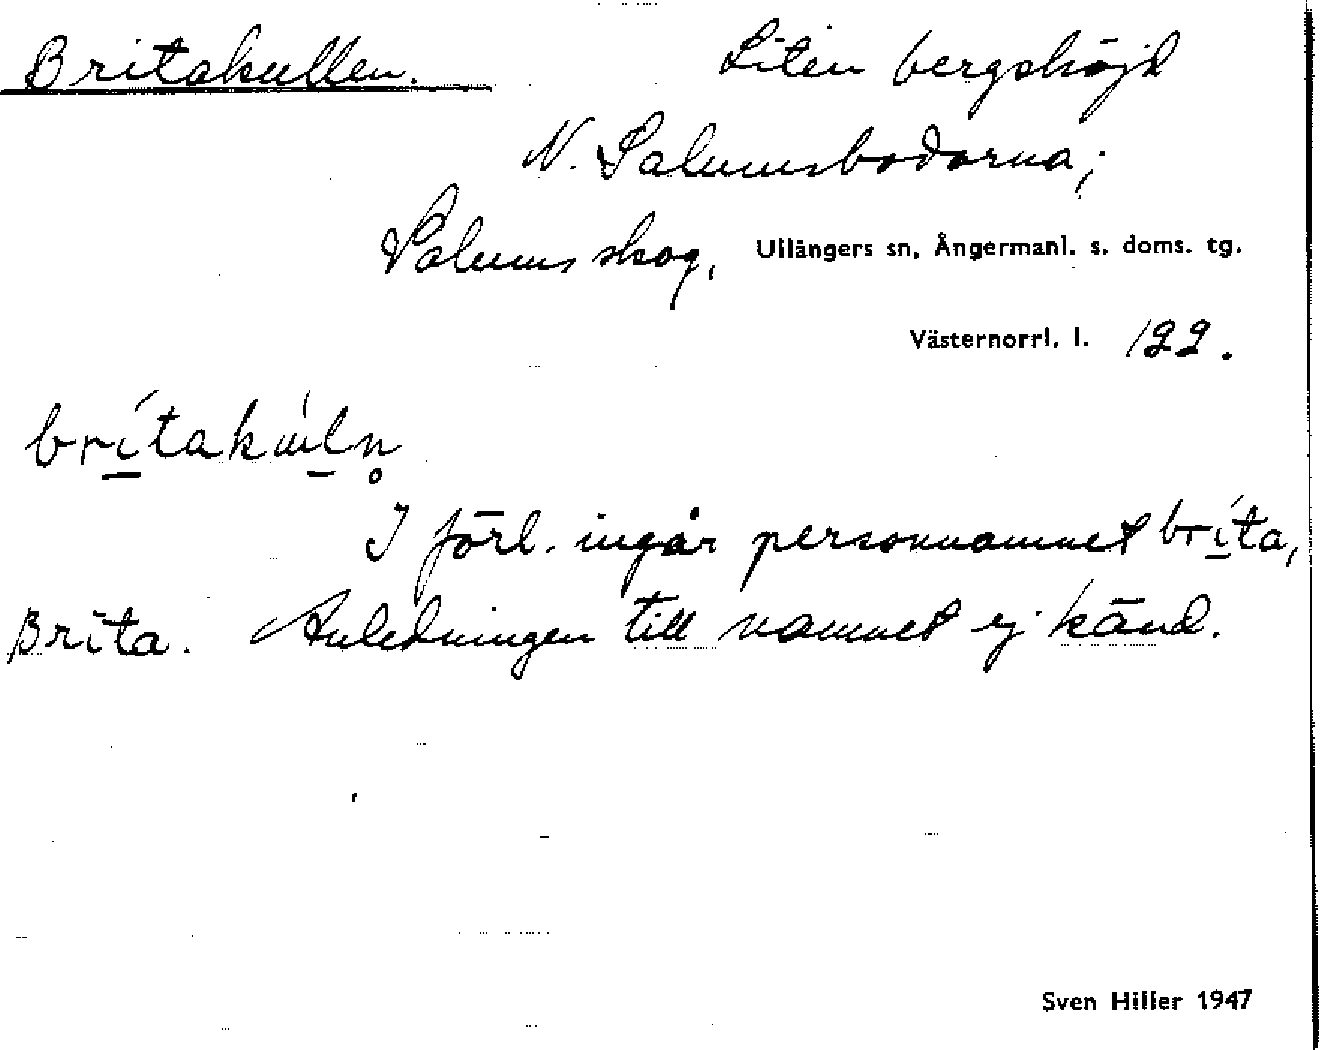 Britakullen. Liten bergshöjd
N. Salumsbodarna;
Salums skog, Ullångers sn, Ångermanl. s. doms. tg.
Västernorrl. l. 122.
I förl. ingår personnamnet brita,
Brita. Anledningen till namnet ej känd.
Sven Hiller 1947